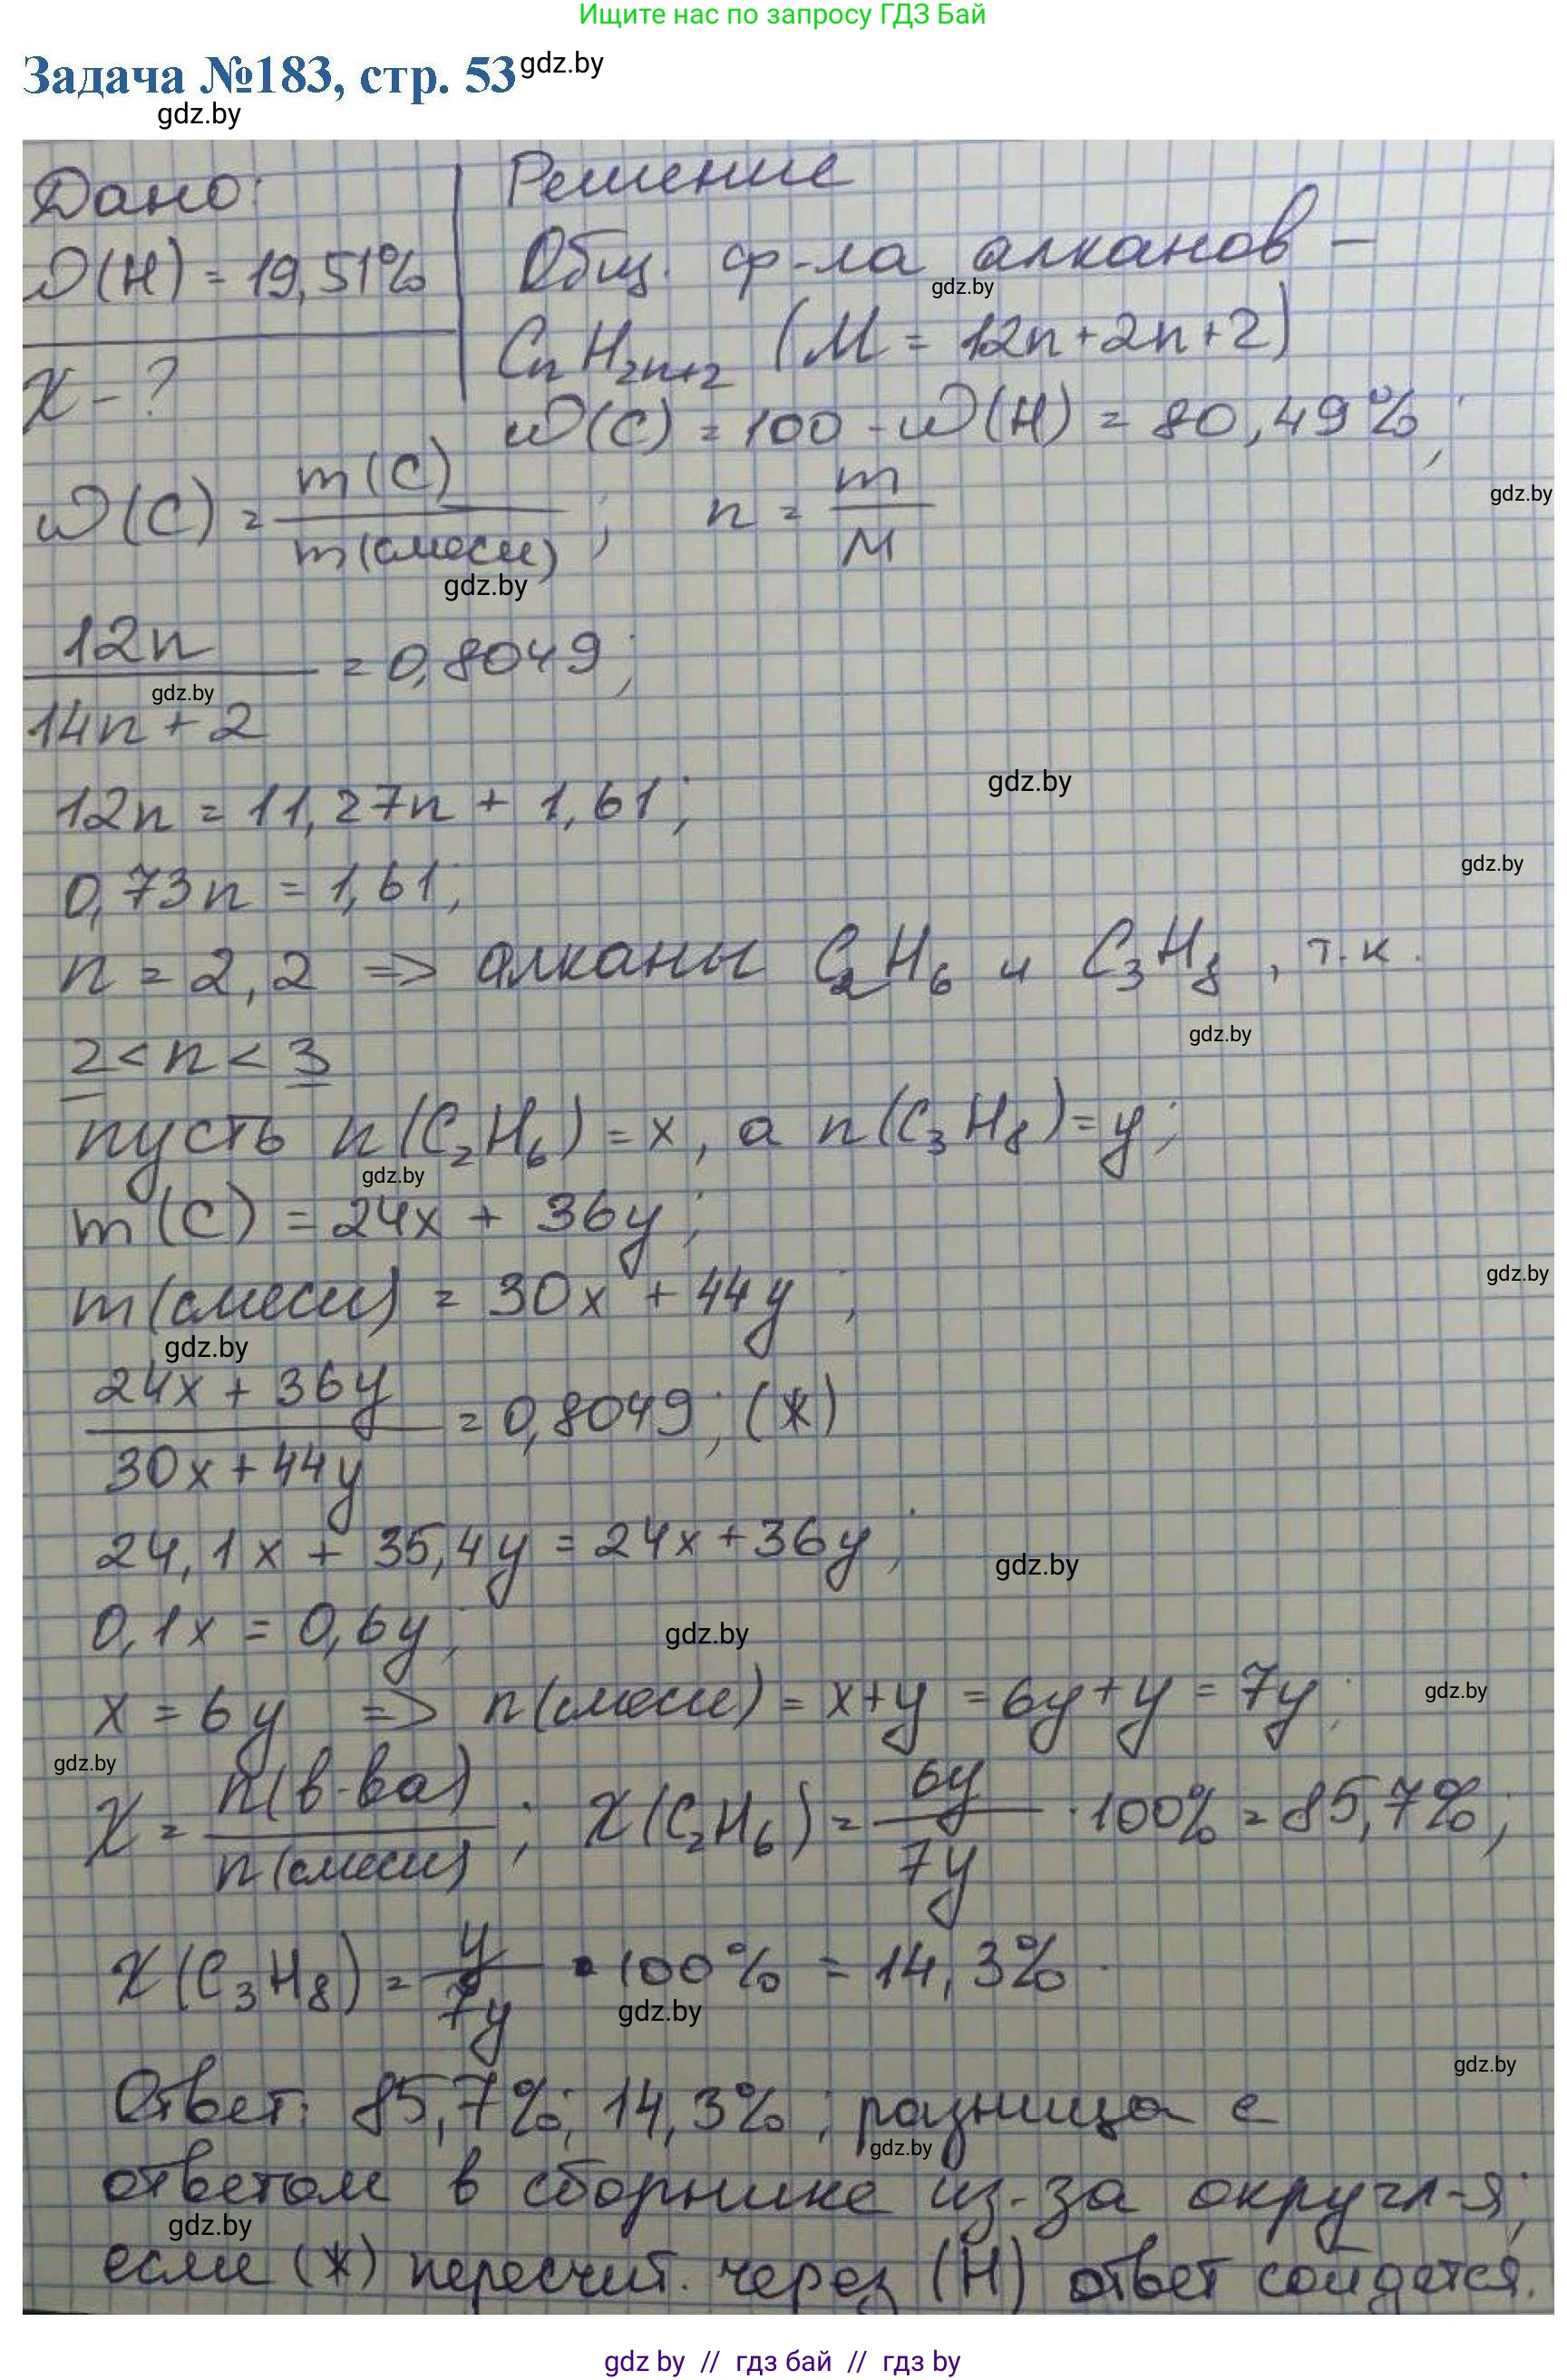 Ищите нас по запросу ГДЗ Бай
Задача №183, стр. 53 gdz.by
gdz.by
Дано: Решение
ω(H) = 19,51% Общ. ф-ла алканов –
gdz.by
χ - ? CnH2n+2 (M = 12n+2n+2)
ω(C) = 100 - ω(H) = 80,49%;
ω(C) = m(C) / m(смеси); n = m / M
gdz.by
gdz.by
12n / 14n + 2 = 0,8049;
gdz.by
12n = 11,27n + 1,61;
gdz.by
0,73n = 1,61;
gdz.by
n = 2,2 => алканы C2H6 и C3H8, т.к.
gdz.by
2 < n < 3
пусть n(C2H6) = x, а n(C3H8) = y;
gdz.by
m(C) = 24x + 36y;
gdz.by
m(смеси) = 30x + 44y;
gdz.by
24x + 36y / 30x + 44y = 0,8049; (*)
24,1x + 35,4y = 24x + 36y;
gdz.by
0,1x = 0,6y;
gdz.by
x = 6y => n(смеси) = x+y = 6y+y = 7y;
gdz.by
gdz.by
χ = n(в-ва) / n(смеси); χ(C2H6) = 6y / 7y · 100% = 85,7%;
χ(C3H8) = y / 7y · 100% = 14,3%.
gdz.by
gdz.by
Ответ: 85,7%; 14,3%; разница с
gdz.by
ответом в сборнике из-за округл-я;
gdz.by
если (*) пересчит. через (H) ответ сойдется.
gdz.by // гдз бай // гдз by